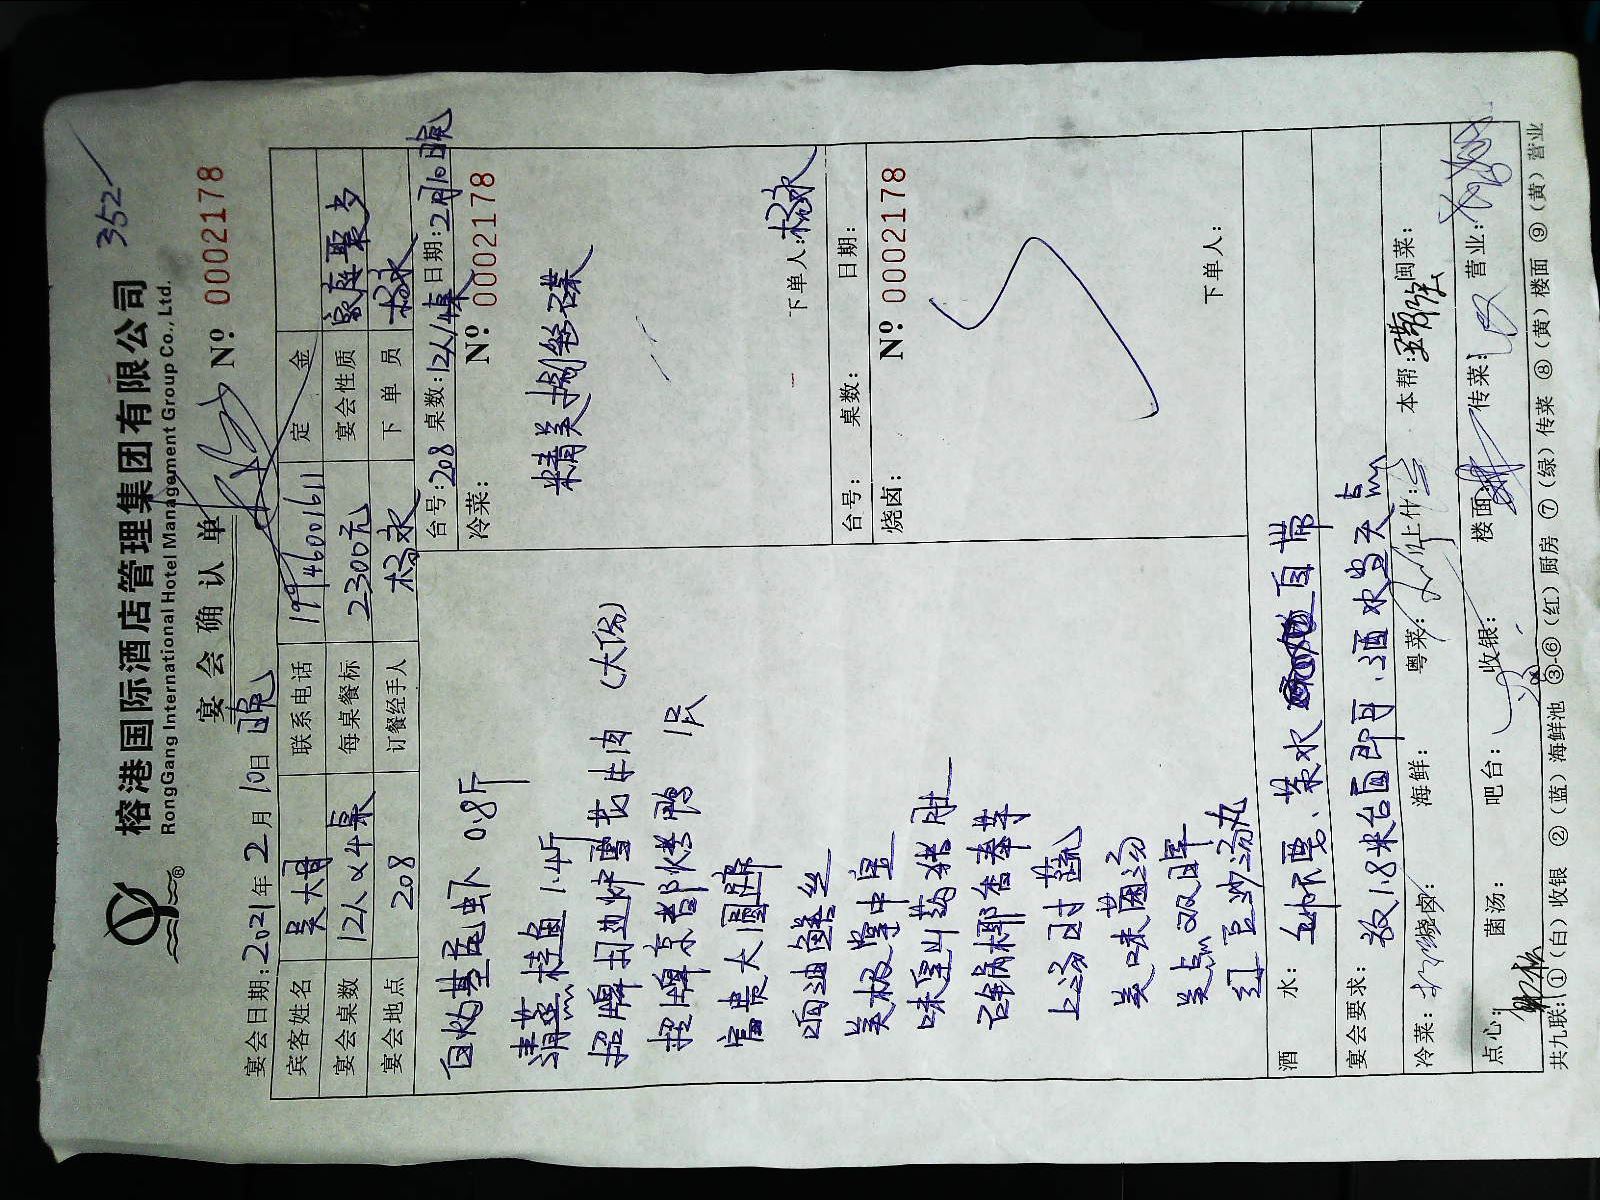 352
榕港国际酒店管理集团有限公司
RongGang International Hotel Management Group Co., Ltd.
宴会确认单
Nº 0002178
宴会日期:2021年2月10日 晚
宾客姓名 联系电话 19946001611 定金
宴会桌数 12人×4桌 每桌餐标 2300元 宴会性质 家庭聚乡
宴会地点 208 订餐经手人 杨永 下单员 杨永
白灼基围虾 0.8斤
清蒸桂鱼 1.4斤
招牌 牛肉 (大份)
招牌京都烤鸭 1只
富贵大圆蹄
响油鳝丝
美极掌中宝
味淮山药猪肚
石锅椰香奉芋
上汤时蔬
美味菌汤
美点双拼
红豆沙汤丸
台号:208 桌数:12人/4桌 日期:2月10日晚
冷菜: Nº 0002178
精美捌冷碟
下单人:杨永
台号: 桌数: 日期:
烧卤: Nº 0002178
下单人:
酒水: 茶水 自带
宴会要求: 放1.8米台面即可.酒水当天点
冷菜: 海鲜: 粤菜: 上什: 本帮: 闽菜:
点心: 菌汤: 吧台: 收银: 楼面: 传菜: 营业:
共九联:①(白)收银 ②(蓝)海鲜池 ③-⑥(红)厨房 ⑦(绿)传菜 ⑧(黄)楼面 ⑨(黄)营业